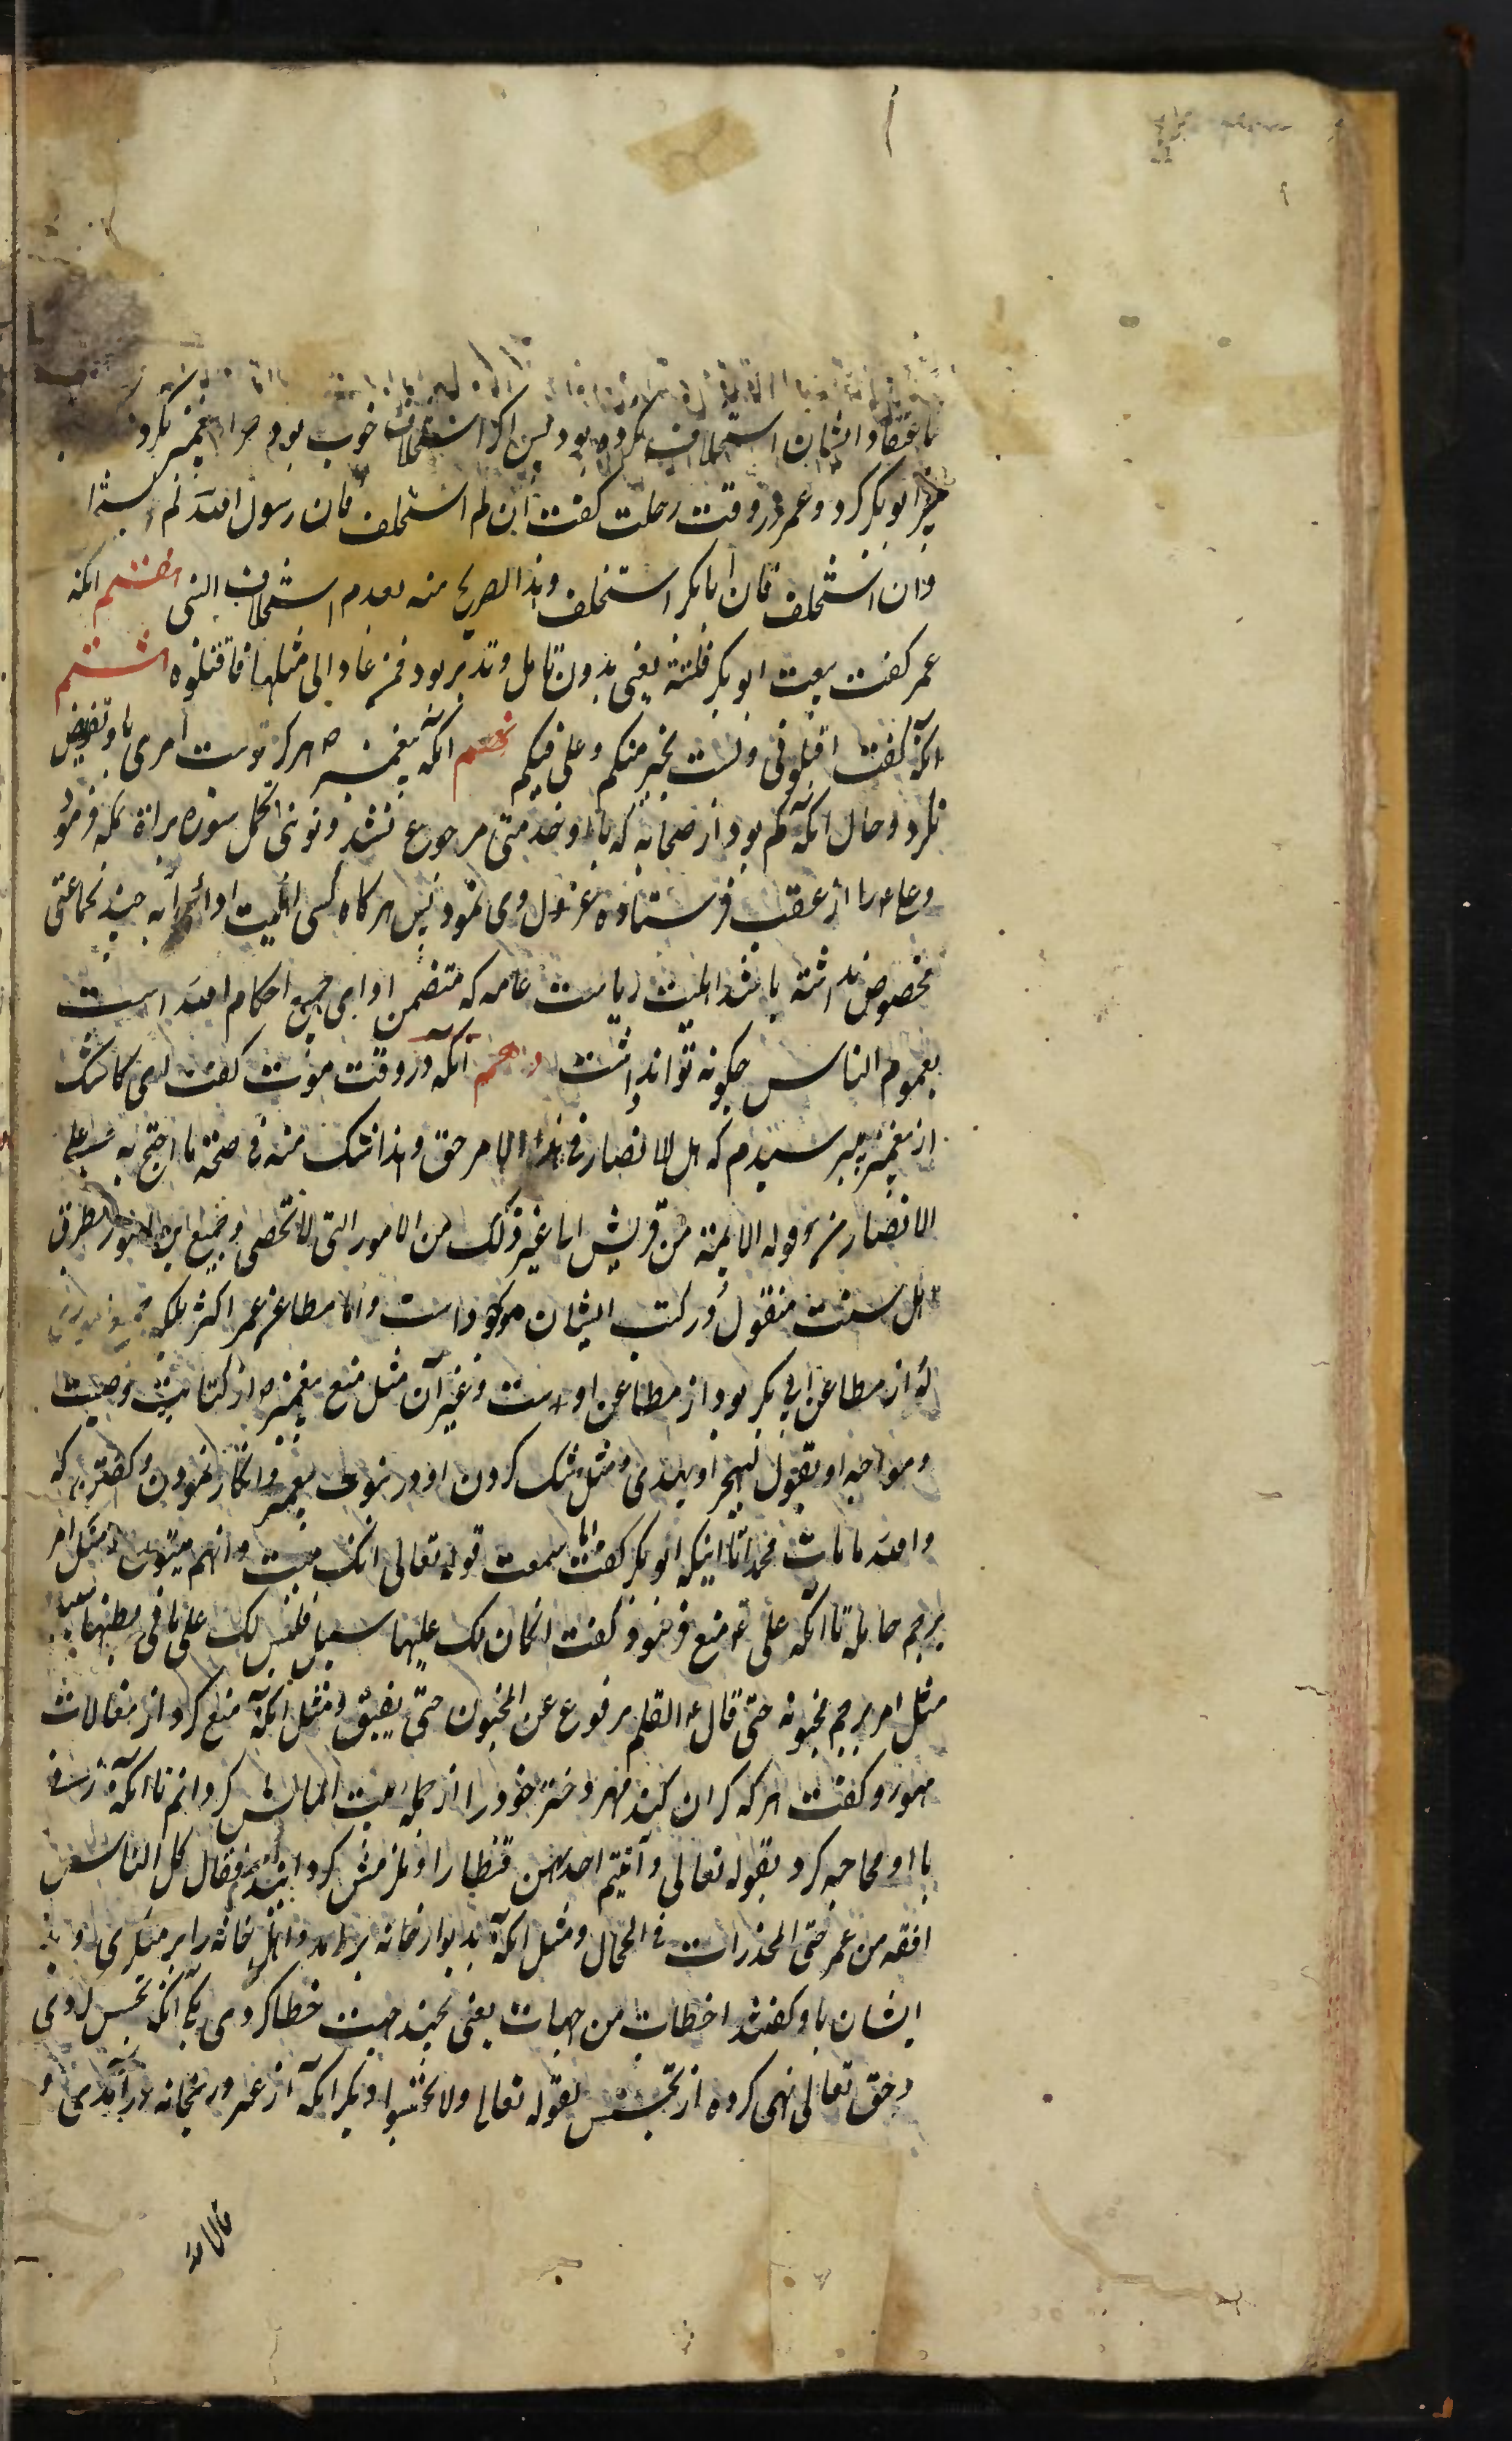 باعتقاد ایشان استخلاف نکرده بود پس اگر استخلاف خوب بود چرا پیغمبر نکرد
ابو بکر کرد و عمر در وقت رحلت کفت ان لم استخلف فان رسول الله لم
وان استخلف فان ابا بکر استخلف وهذا لصریح منه بعدم استخلاف النبی هفتم انکه
عمر کفت بیعت ابو بکر فلتة یعنی بدون تامل و تدبر بود فمن عاد الی مثلها فاقتلوه هشتم
انکه کفت اقیلونی ولست بخیر منکم وعلی فیکم نهم انکه پیغمبر ص هرکز امری باو تفویض
نکرد و حال انکه کم بود از صحابه که باو خدمتی مرجوع نشد و نوبتی انحمل سوره براة بمکه فرمود
وعلی را از عقب فرستاده عزل وی نمود پس هرکاه کسی اهلیت ادای آیه چند بجماعتی
مخصوص نداشته باشد اهلیت ریاست عامه که متضمن ادای جمیع احکام الله است
بعموم الناس چکونه تواند داشت دهم آنکه در وقت موت کفت ای کاشک
از پیغمبر میپرسیدم که هل للانصار فی هذا الامر حق وهذا شک منه فی صحة ما احتج به علی
الانصار من قوله الایمة من قریش الی غیر ذلک من الامور التی لا تحصی وجمیع این امور بطرق
اهل سنت منقول ودر کتب ایشان موجود است واما مطاعن عمر اکثر بلکه جمیع
از مطاعن ابی بکر بود از مطاعن اوست وغیر آن مثل منع پیغمبر ص از کتابت وصیت
ومواجهه او بقول لیهجر او یهذی ومثل شک کردن او در موت پیغمبر وانکار نمودن وکفتن که
والله ما مات محمد تا اینکه ابو بکر کفت اما سمعت قوله تعالی انک میت وانهم میتون ومثل امر
برجم حامله تا آنکه علی ع منع فرمود کفت ان کان لک علیها سبیل فلیس لک علی ما فی بطنها سبیل
مثل امر برجم مجنونه حتی قال ع القلم مرفوع عن المجنون حتی یفیق ومثل آنکه منع کرد از مغالات
مهور وکفت هرکه کران کند مهر دختر خود را از جمله بیت المالش کردانم تا آنکه زنی
با او محاجه کرد بقوله تعالی وآتیتم احدیهن قنطارا وملزمش کردانید فقال کل الناس
افقه من عمر حتی المخدرات فی الحجال ومثل آنکه بدیوار خانه برآمد واهل خانه را بر منکری دید
ایشان باو کفتند اخطات من جهات یعنی بچند جهت خطا کردی یکی آنکه تجسس کردی
وحق تعالی نهی کرده از تجسس بقوله تعالی ولا تجسسوا دیکر آنکه از غیر در بخانه درآمدی و